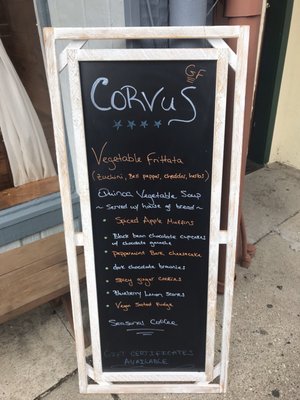 GF
CORVUS
Vegetable Frittata
(Zuchini, Bell pepper, cheddar, herbs)
Quinoa Vegetable Soup
~ Served w/ house gf bread ~
Spiced Apple Muffins
Black bean chocolate cupcakes
w/ chocolate ganache
Peppermint Bark cheesecake
dark chocolate brownies
Spicy ginger cookies
Blueberry Lemon Scones
Vegan Salted Fudge
Seasonal Coffee
GIFT CERTIFICATES
AVAILABLE